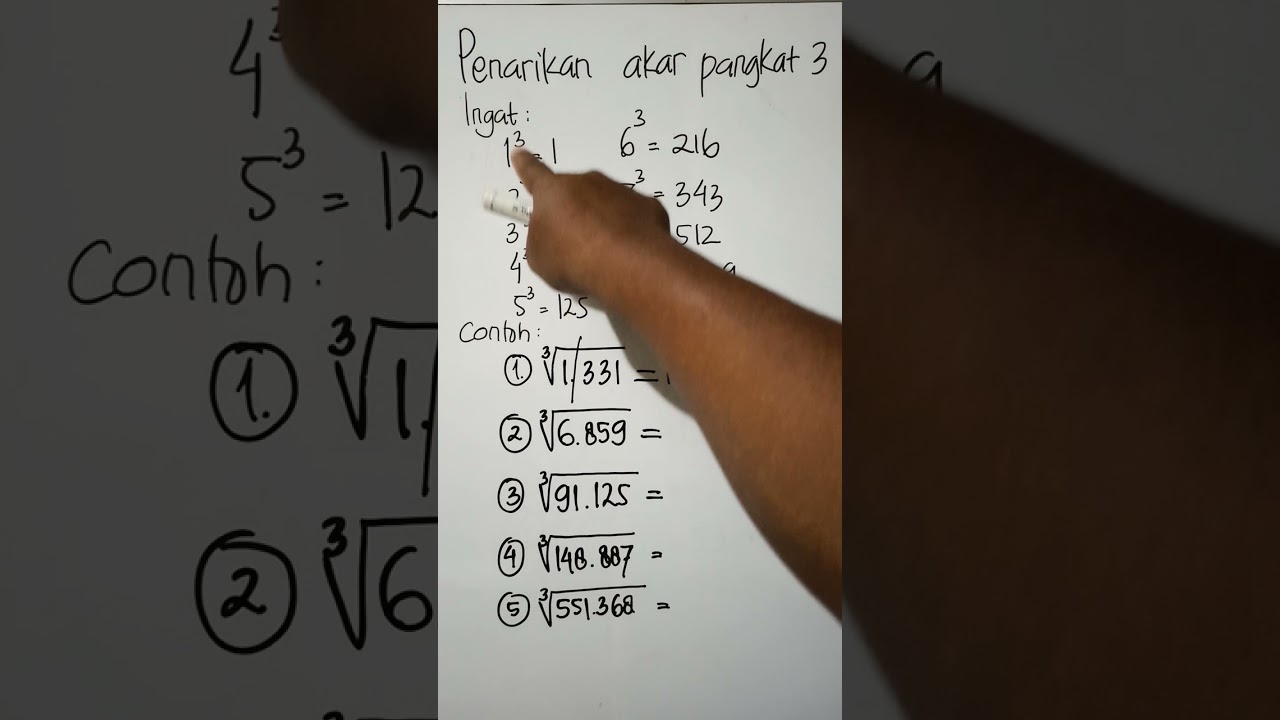 Penarikan akar pangkat 3
Ingat:
1³ = 1 6³ = 216
³ = 343
3 512
4³
5³ = 125
Contoh:
①. ³√1./331 =
② ³√6.859 =
③ ³√91.125 =
④ ³√148.887 =
⑤ ³√551.368 =